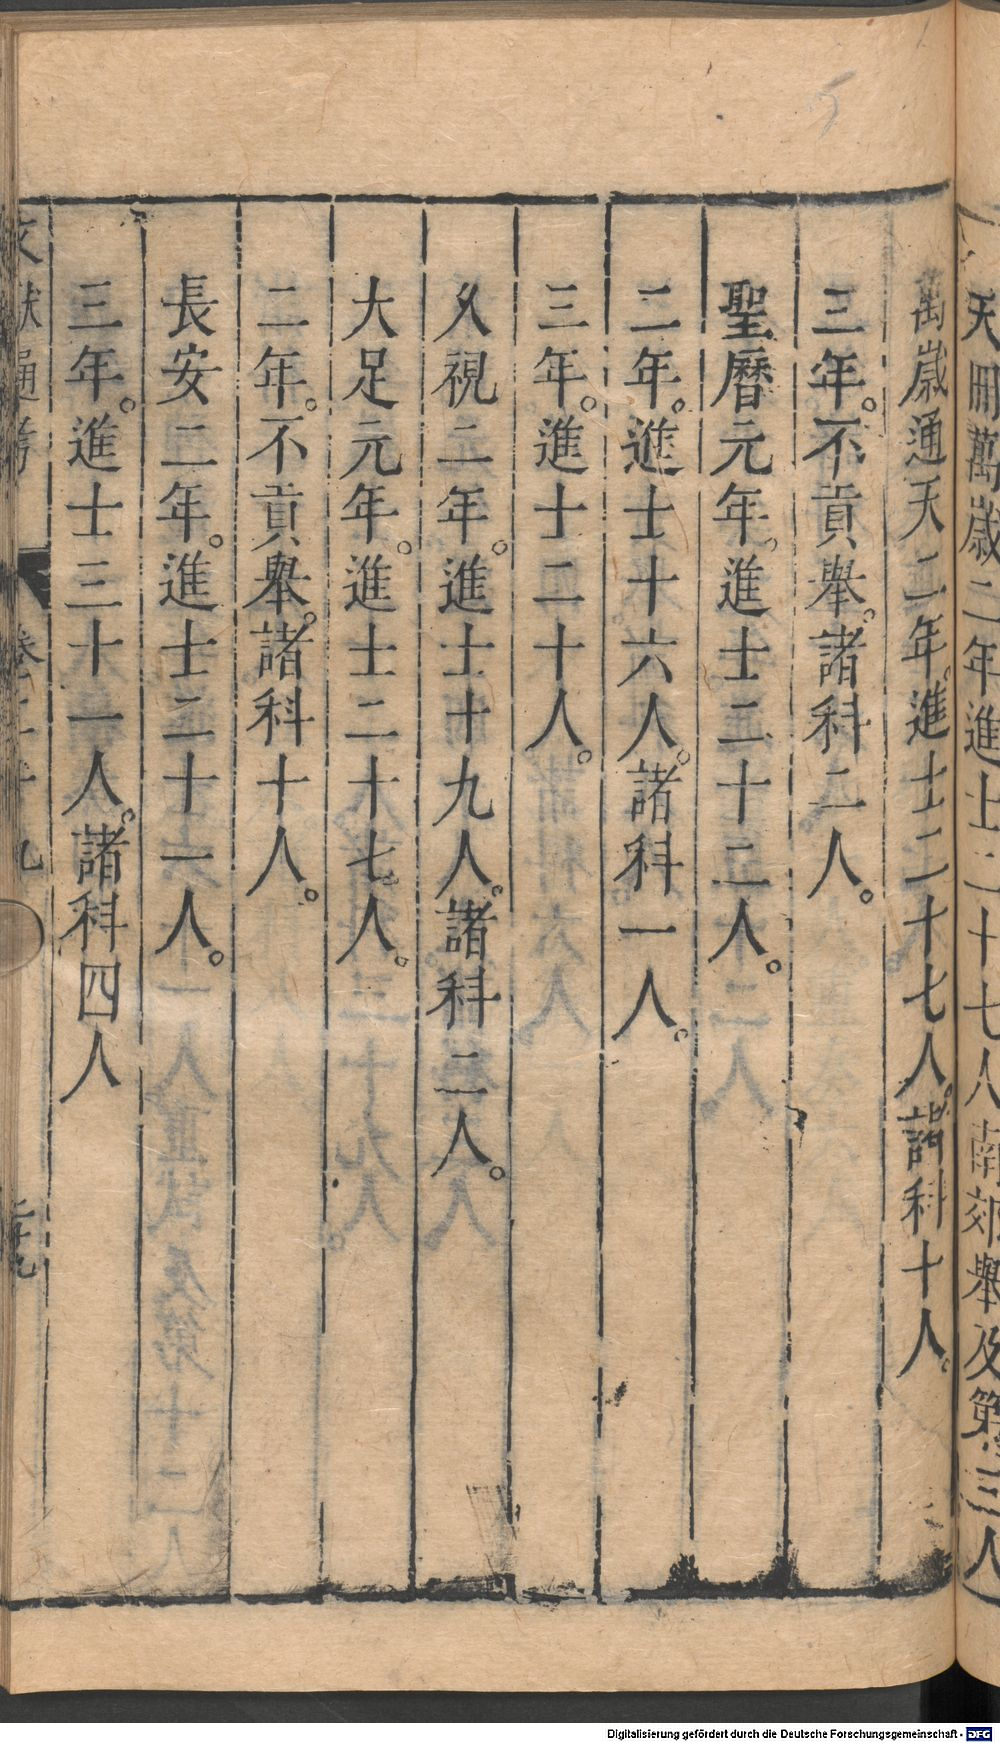 天冊萬歲二年進士二十七人南郊舉及第三人
萬歲通天二年。進士二十七人。諸科十人。
三年。不貢舉。諸科二人。
聖曆元年。進士二十二人。
二年。進士十六人。諸科一人。
三年。進士二十人。
久視二年。進士十九人。諸科二人。
大足元年。進士二十七人。
二年。不貢舉。諸科十人。
長安二年。進士二十一人。
三年。進士三十一人。諸科四人
文獻通考 卷二十九 二十九
Digitalisierung gefördert durch die Deutsche Forschungsgemeinschaft - DFG